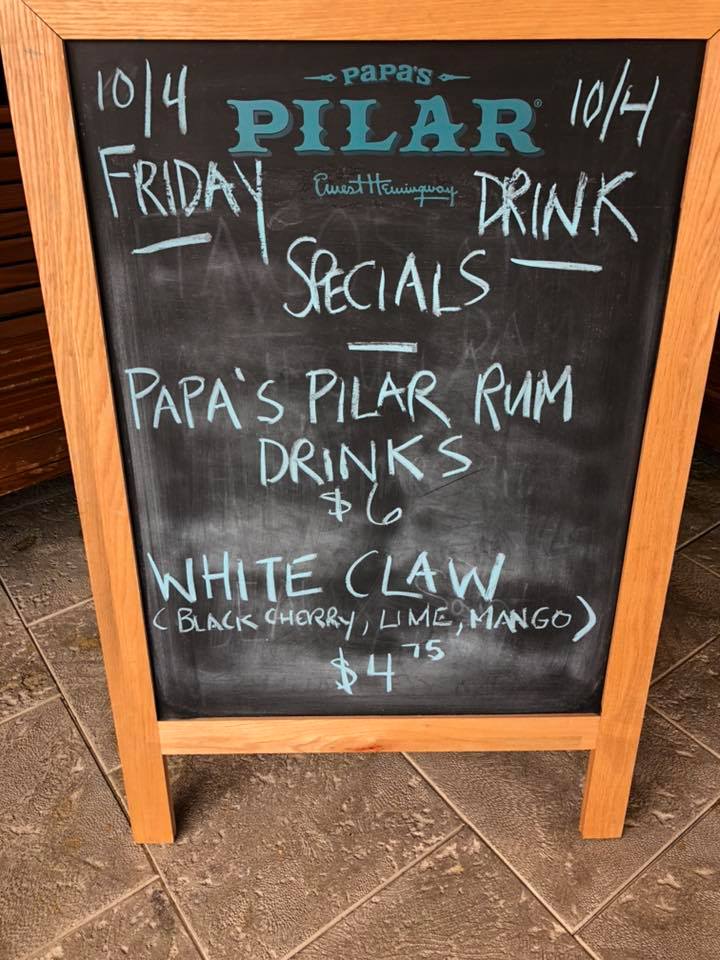 PAPA'S
10/4 PILAR® 10/4
Ernest Hemingway
FRIDAY DRINK
SPECIALS
PAPA'S PILAR RUM
DRINKS
$6
WHITE CLAW
(BLACK CHERRY, LIME, MANGO)
$4 75